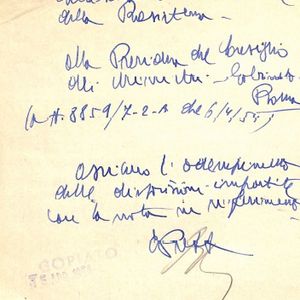 della
alla Presidenza del Consiglio
dei Ministri - Gabinetto
Roma
(a n. 8859/7-2- del 6/4/51)
assicuro l'adempimento
delle disposizioni impartite
con la nota in riferimento
COPIATO